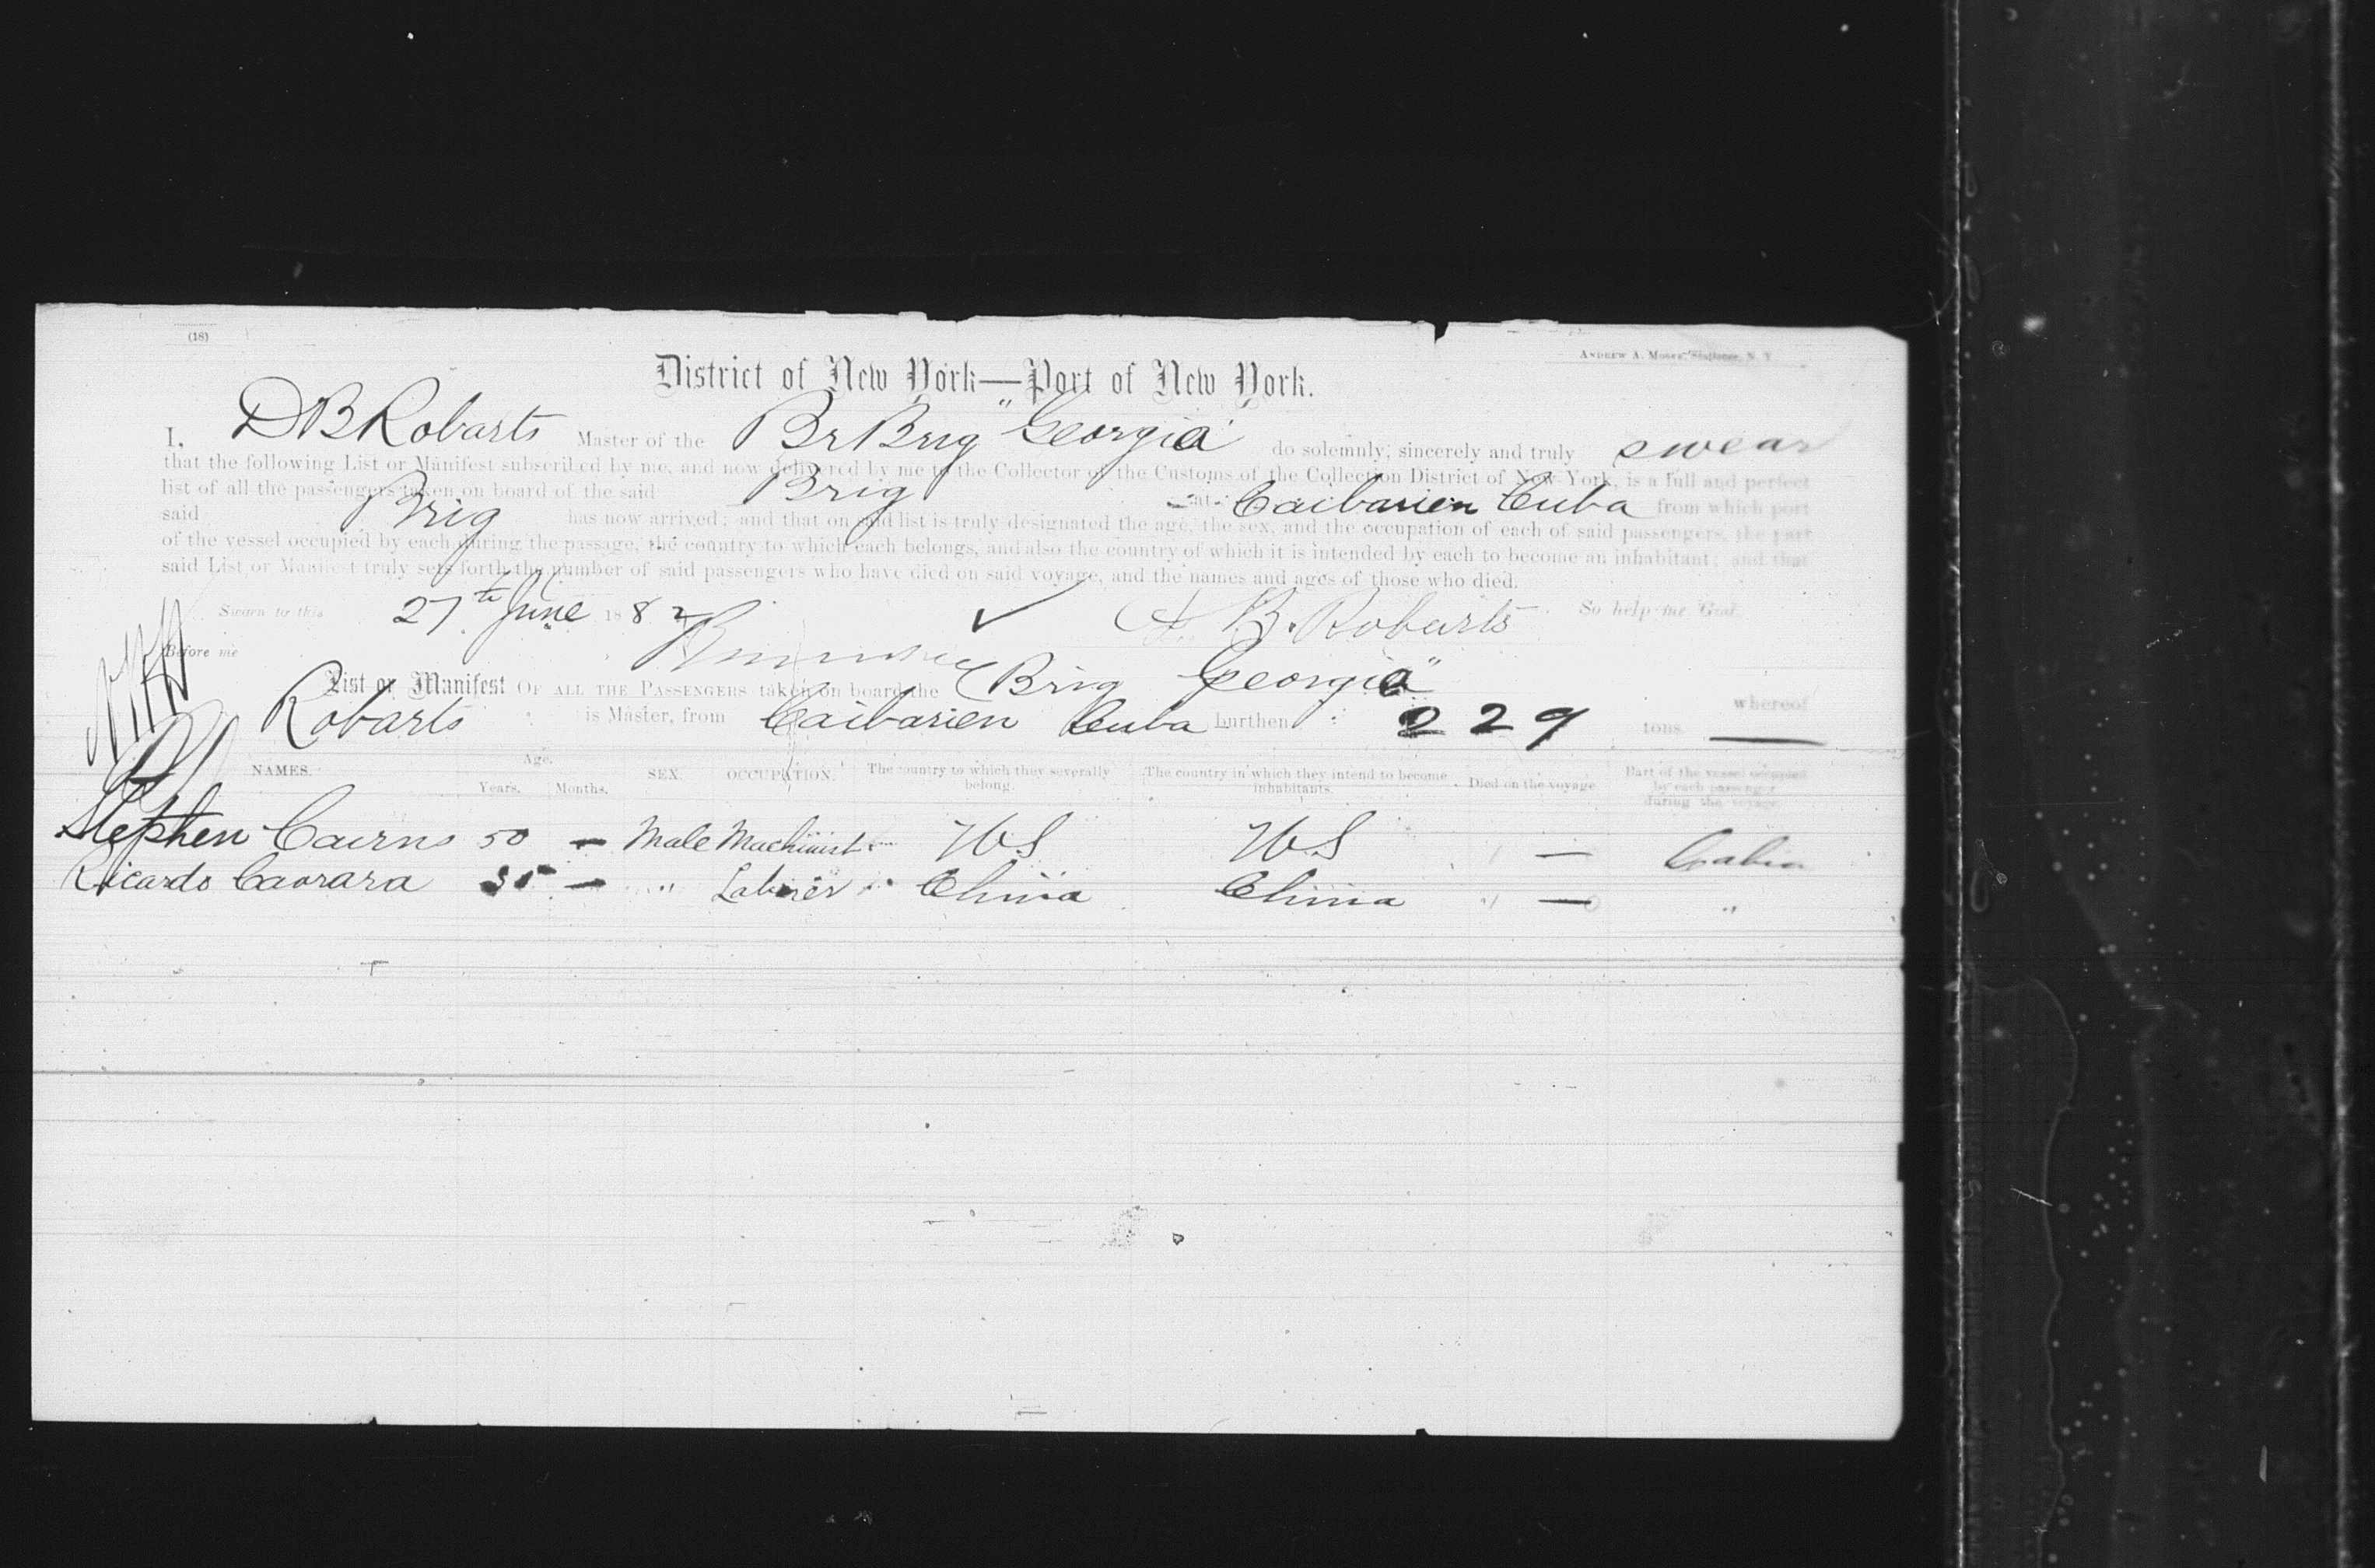 (18)
ANDREW A. Moses, Stationer, N. Y.
District of New York—Port of New York.
I, D B Robarts Master of the Br Brig "Georgia" do solemnly, sincerely and truly swear
that the following List or Manifest subscribed by me, and now delivered by me to the Collector of the Customs of the Collection District of New York, is a full and perfect
list of all the passengers taken on board of the said Brig at Caibarien Cuba from which port
said Brig has now arrived; and that on said list is truly designated the age, the sex, and the occupation of each of said passengers, the part
of the vessel occupied by each during the passage, the country to which each belongs, and also the country of which it is intended by each to become an inhabitant; and that
said List or Manifest truly sets forth the number of said passengers who have died on said voyage, and the names and ages of those who died.
Sworn to this 27th June 1882 B. Robarts So help me God.
Before me
List or Manifest OF ALL THE PASSENGERS taken on board the Brig Georgia" whereof
Robarts is Master, from Caibarien Cuba burthen 229 tons
NAMES. Age. Years. Months. SEX. OCCUPATION. The country to which they severally belong. The country in which they intend to become inhabitants. Died on the voyage Part of the vessel occupied by each passenger during the voyage.
Stephen Cairns 50 — Male Machinist US US — Cabin
Ricardo Caorara 35 — " Laborer China China — "